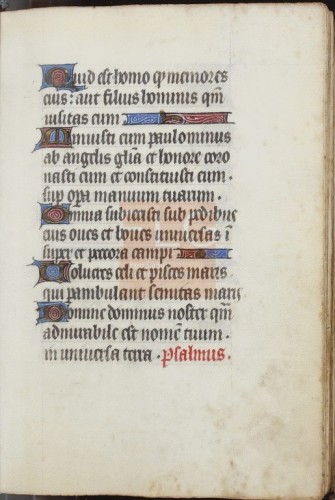 Quid est homo qp memores
eius: aut filius hominis qm
visitas eum
Minuisti eum paulominus
ab angelis glia et honore coro
nasti eum et constituisti eum.
sup opa manuum tuarum.
Omnia subiecisti sub pedibus
eius oves et boves universas i
super et peccora campi
Volucres celi et pisces maris
qui pambulant semitas maris
Domine dominus noster qm
admirabile est nomē tuum.
in universa terra. Psalmus.